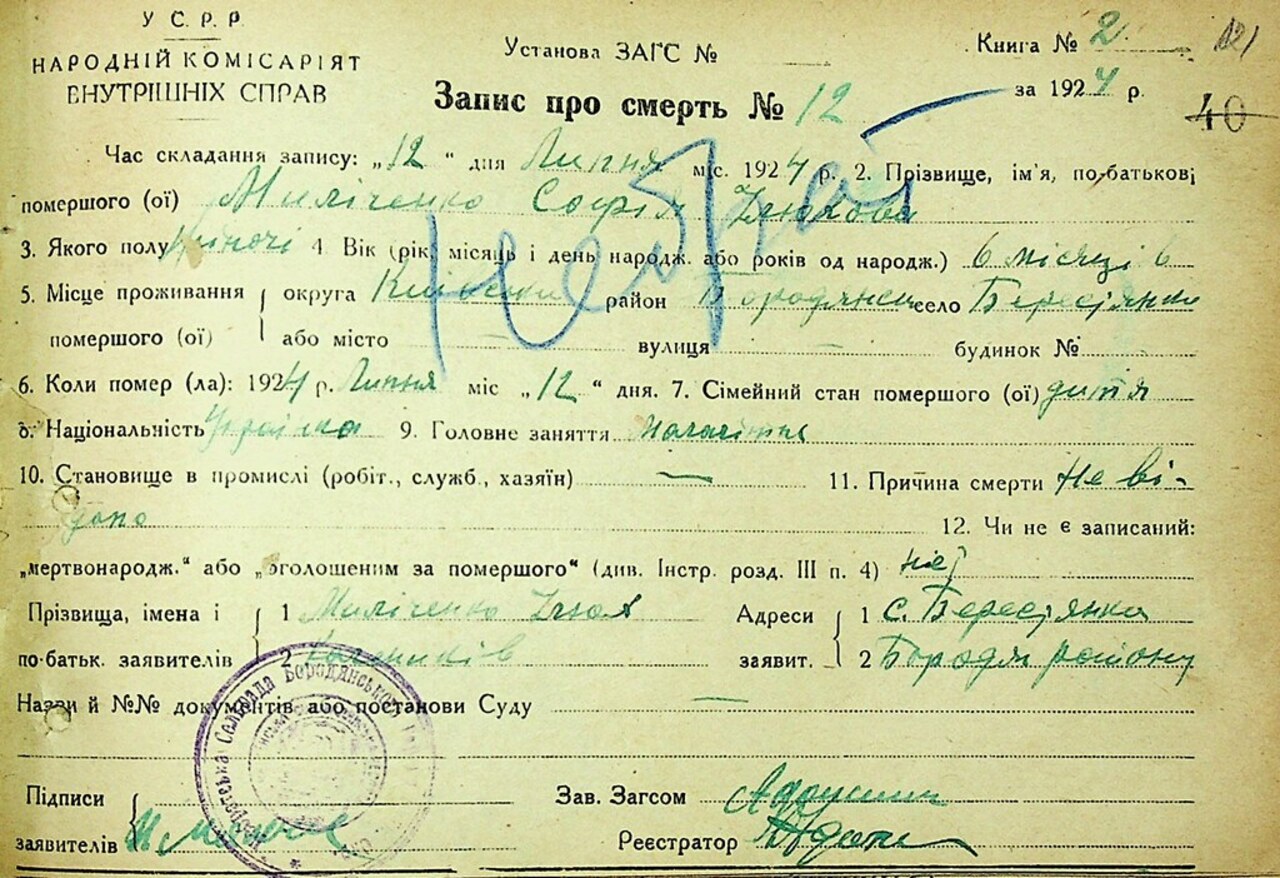 У С. Р. Р
НАРОДНІЙ КОМІСАРІЯТ
ВНУТРІШНІХ СПРАВ
Установа ЗАГС №
Книга № 2
121
Запис про смерть № 12
за 1924 р.
40
Час складання запису: „12“ дня Липня міс. 1924 р. 2. Прізвище, ім'я, по-батькові
помершого (ої) Миліченко Софія
3. Якого полу жіночі 4. Вік (рік, місяць і день народж. або років од народж.) 6 місяців
5. Місце проживання округа Київська район Бородянськ село Берестянка
помершого (ої) або місто — вулиця — будинок №
6. Коли помер (ла): 1924 р. Липня міс „12“ дня. 7. Сімейний стан помершого (ої) дитя
8. Національність Українка 9. Головне заняття
10. Становище в промислі (робіт., служб., хазяїн) — 11. Причина смерти Не ві-
домо
12. Чи не є записаний:
„мертвонародж.“ або „оголошеним за помершого“ (див. Інстр. розд. III п. 4) ні
Прізвища, імена і 1 Миліченко Адреси 1 с. Берестянка
по-батьк. заявителів 2 заявит. 2 Бородя району
Назви й №№ документів або постанови Суду —
Підписи
Зав. Загсом
заявителів
Реєстратор
Сельрада Бородянського